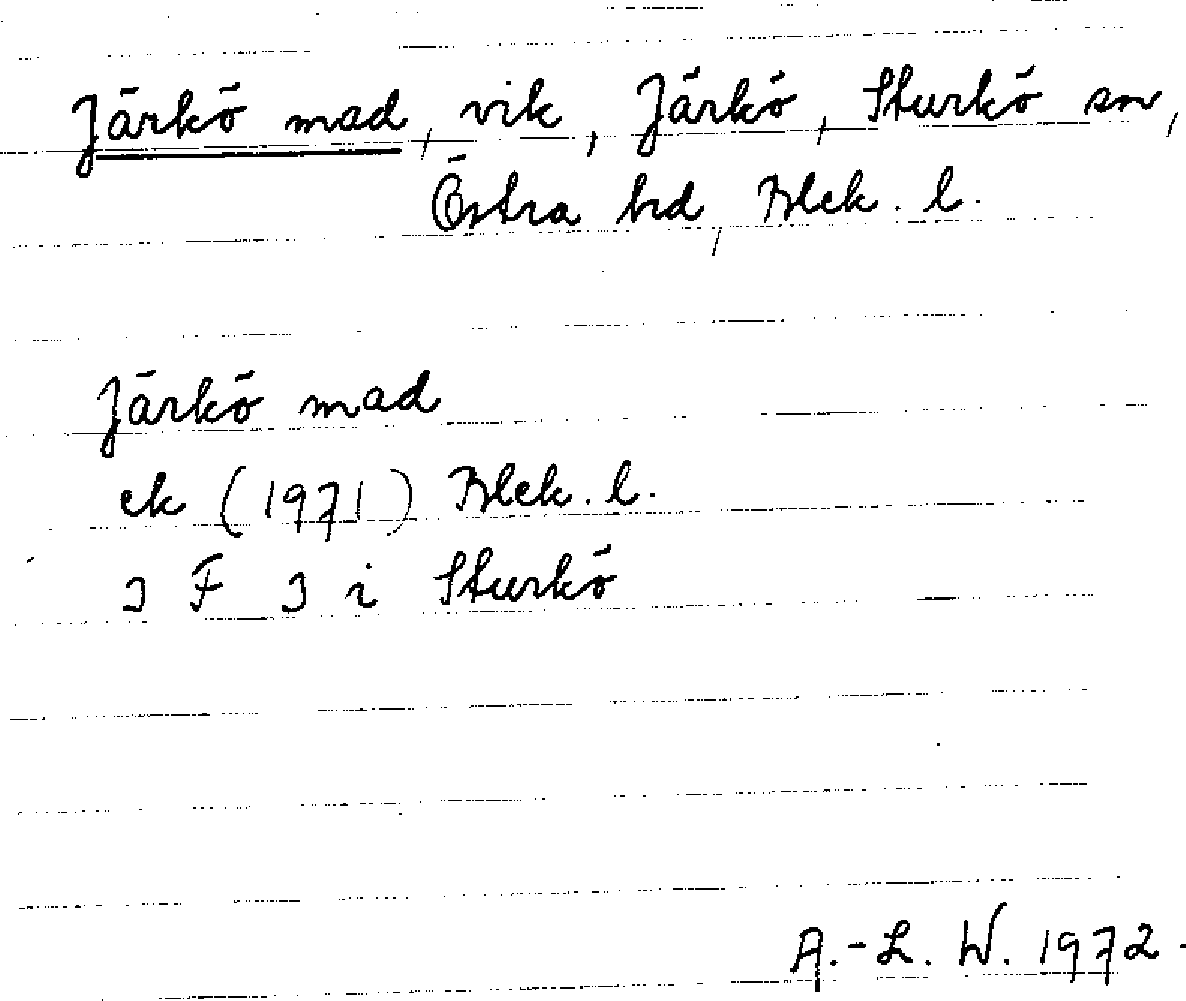 Järkö mad, vik, Järkö, Sturkö sn,
Östra hd, Blek. l.
Järkö mad
ek (1971) Blek. l.
3 F 3 i Sturkö
A.-L. W. 1972.